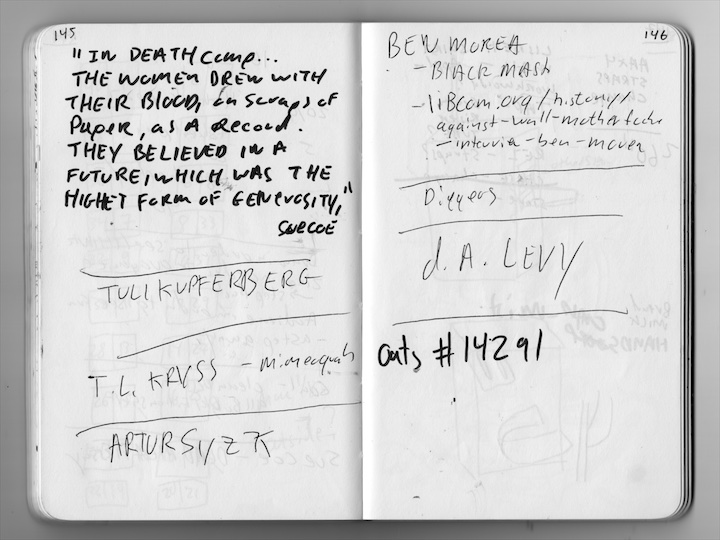 145
"IN DEATH camp...
THE WOMEN DREW WITH
THEIR BLOOD, on scraps of
Paper, as A Record.
THEY BELIEVED IN A
FUTURE, WHICH WAS THE
HIGHET FORM OF GENEROSITY,"
SUECOE
TULI KUPFERBERG
T. L. KRYSS - mimeograph
ARTUR SIYZK
146
BEN MOREA
- BLACK MASK
- libcom.org/history/
against-wall-motherfucke
- interview-ben-morea
Diggers
d. A. LEVY
#14291